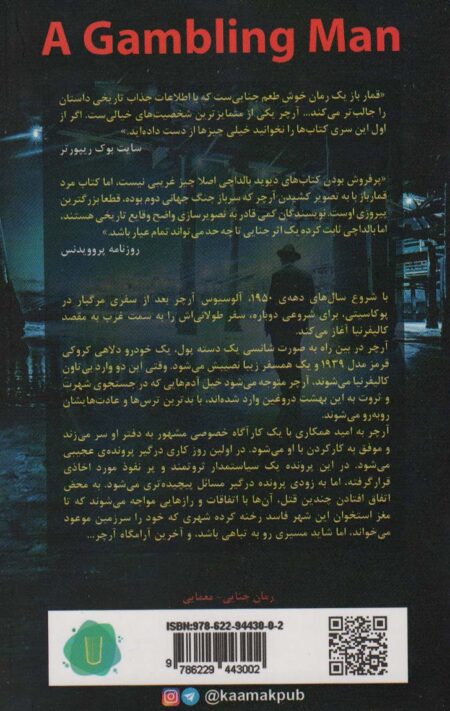 A Gambling Man
«قمار باز یک رمان خوش طعم جنایی‌ست که با اطلاعات جذاب تاریخی داستان
را جالب‌تر می‌کند... آرچر یکی از متمایزترین شخصیت‌های خیالی‌ست. اگر از
اول این سری کتاب‌ها را نخوانید خیلی چیزها از دست داده‌اید.»
سایت بوک ریپورتر
«پرفروش بودن کتاب‌های دیوید بالداچی اصلا چیز غریبی نیست، اما کتاب مرد
قمارباز با به تصویر کشیدن آرچر که سرباز جنگ جهانی دوم بوده، قطعا بزرگترین
پیروزی اوست. نویسندگان کمی قادر به تصویرسازی واضح وقایع تاریخی هستند،
اما بالداچی ثابت کرده یک اثر جنایی تا چه حد می‌تواند تمام عیار باشد.»
روزنامه پروویدنس
با شروع سال‌های دهه‌ی ۱۹۵۰، آلوسیوس آرچر بعد از سفری مرگبار در
پوکاسیتی، برای شروعی دوباره، سفر طولانی‌اش را به سمت غرب به مقصد
کالیفرنیا آغاز می‌کند.
آرچر در بین راه به صورت شانسی یک دسته پول، یک خودرو دلاهی کروکی
قرمز مدل ۱۹۳۹ و یک همسفر زیبا نصیبش می‌شود. وقتی این دو وارد بی‌تاون
کالیفرنیا می‌شوند، آرچر متوجه می‌شود خیل آدم‌هایی که در جستجوی شهرت
و ثروت به این بهشت دروغین وارد شده‌اند، با بدترین ترس‌ها و عادت‌هایشان
روبه‌رو می‌شوند.
آرچر به امید همکاری با یک کارآگاه خصوصی مشهور به دفتر او سر می‌زند
و موفق به کارکردن با او می‌شود. در اولین روز کاری درگیر پرونده‌ی عجیبی
می‌شود. در این پرونده یک سیاستمدار ثروتمند و پر نفوذ مورد اخاذی
قرارگرفته، اما به زودی پرونده درگیر مسائل پیچیده‌تری می‌شود. به محض
اتفاق افتادن چندین قتل، آن‌ها با اتفاقات و رازهایی مواجه می‌شوند که تا
مغز استخوان این شهر فاسد رخنه کرده شهری که خود را سرزمین موعود
می‌خواند، اما شاید مسیری رو به تباهی باشد، و آخرین آرامگاه آرچر...
رمان جنایی - معمایی
ISBN:978-622-94430-0-2
9 786229 443002
@kaamakpub